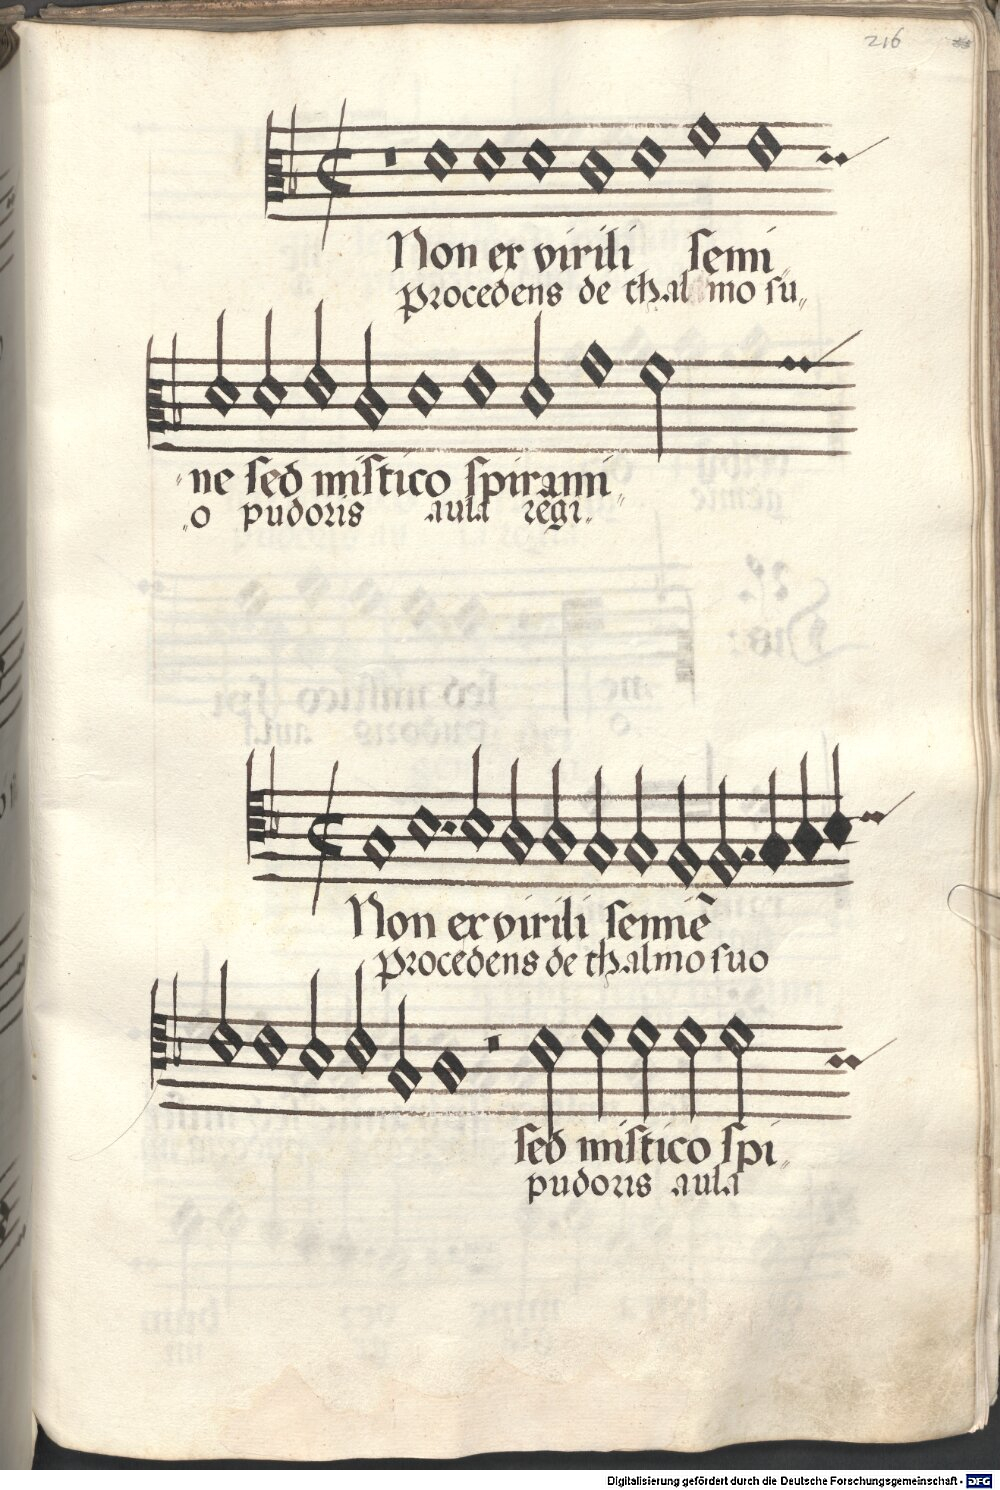 216
Non ex virili semi„
procedens de thalamo su„
„ne sed mistico spirami„
„o pudoris aula regi„
Non ex virili semiē
procedens de thalmo suo
sed mistico spi„
pudoris aula
Digitalisierung gefördert durch die Deutsche Forschungsgemeinschaft - DFG